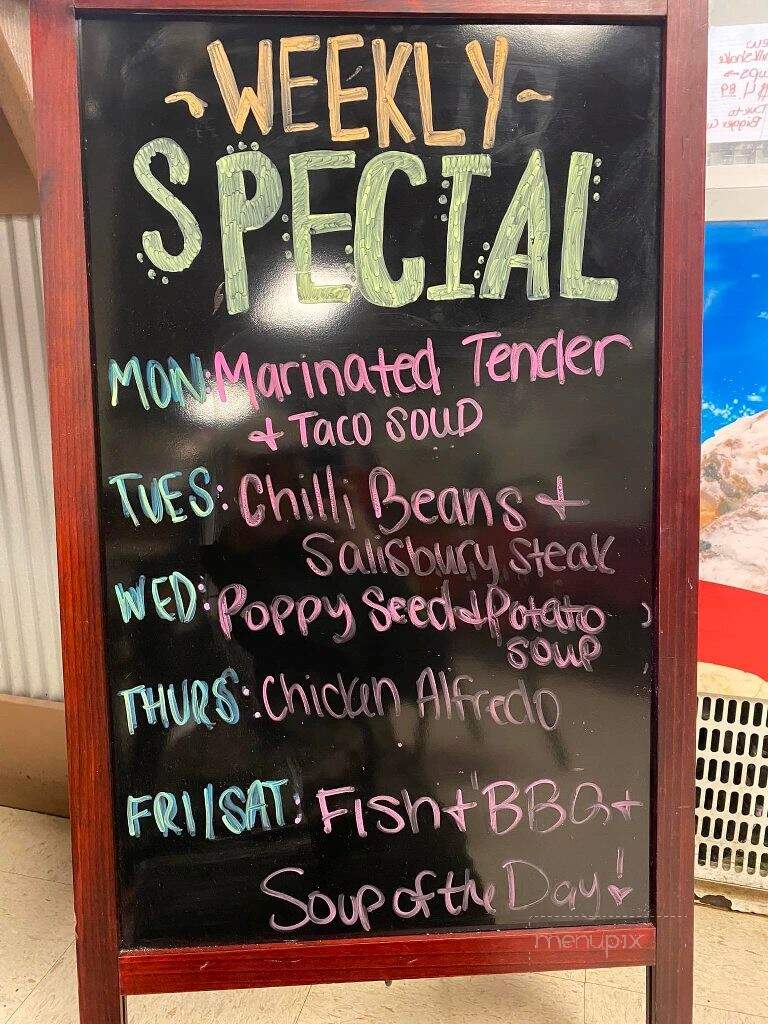 ~WEEKLY~
SPECIAL
MON: Marinated Tender
+ Taco Soup
TUES: Chilli Beans +
Salisbury Steak
WED: Poppy Seed + Potato
Soup
THURS: Chicken Alfredo
FRI/SAT: Fish + BBQ +
Soup of the Day!
menupix